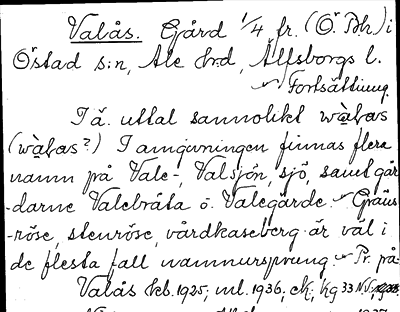 Valås. Gård 1/4 fr. (Ö. Bh.) i
Östad s:n, Ale h:d, Älfsborgs l.
Fortsättning.
I ä. uttal sannolikt wàḷas
(wàḷas?) I omgivningen finnas flera
namn på Vale-, Valsjön, sjö, samt går-
darne Valebråta o. Valegårde Gräns-
röse, stenröse, vårdkaseberg är väl i
de flesta fall namnursprung Pr. på:
Valås kb. 1925, ml. 1936, ck, kg 33 N.V.